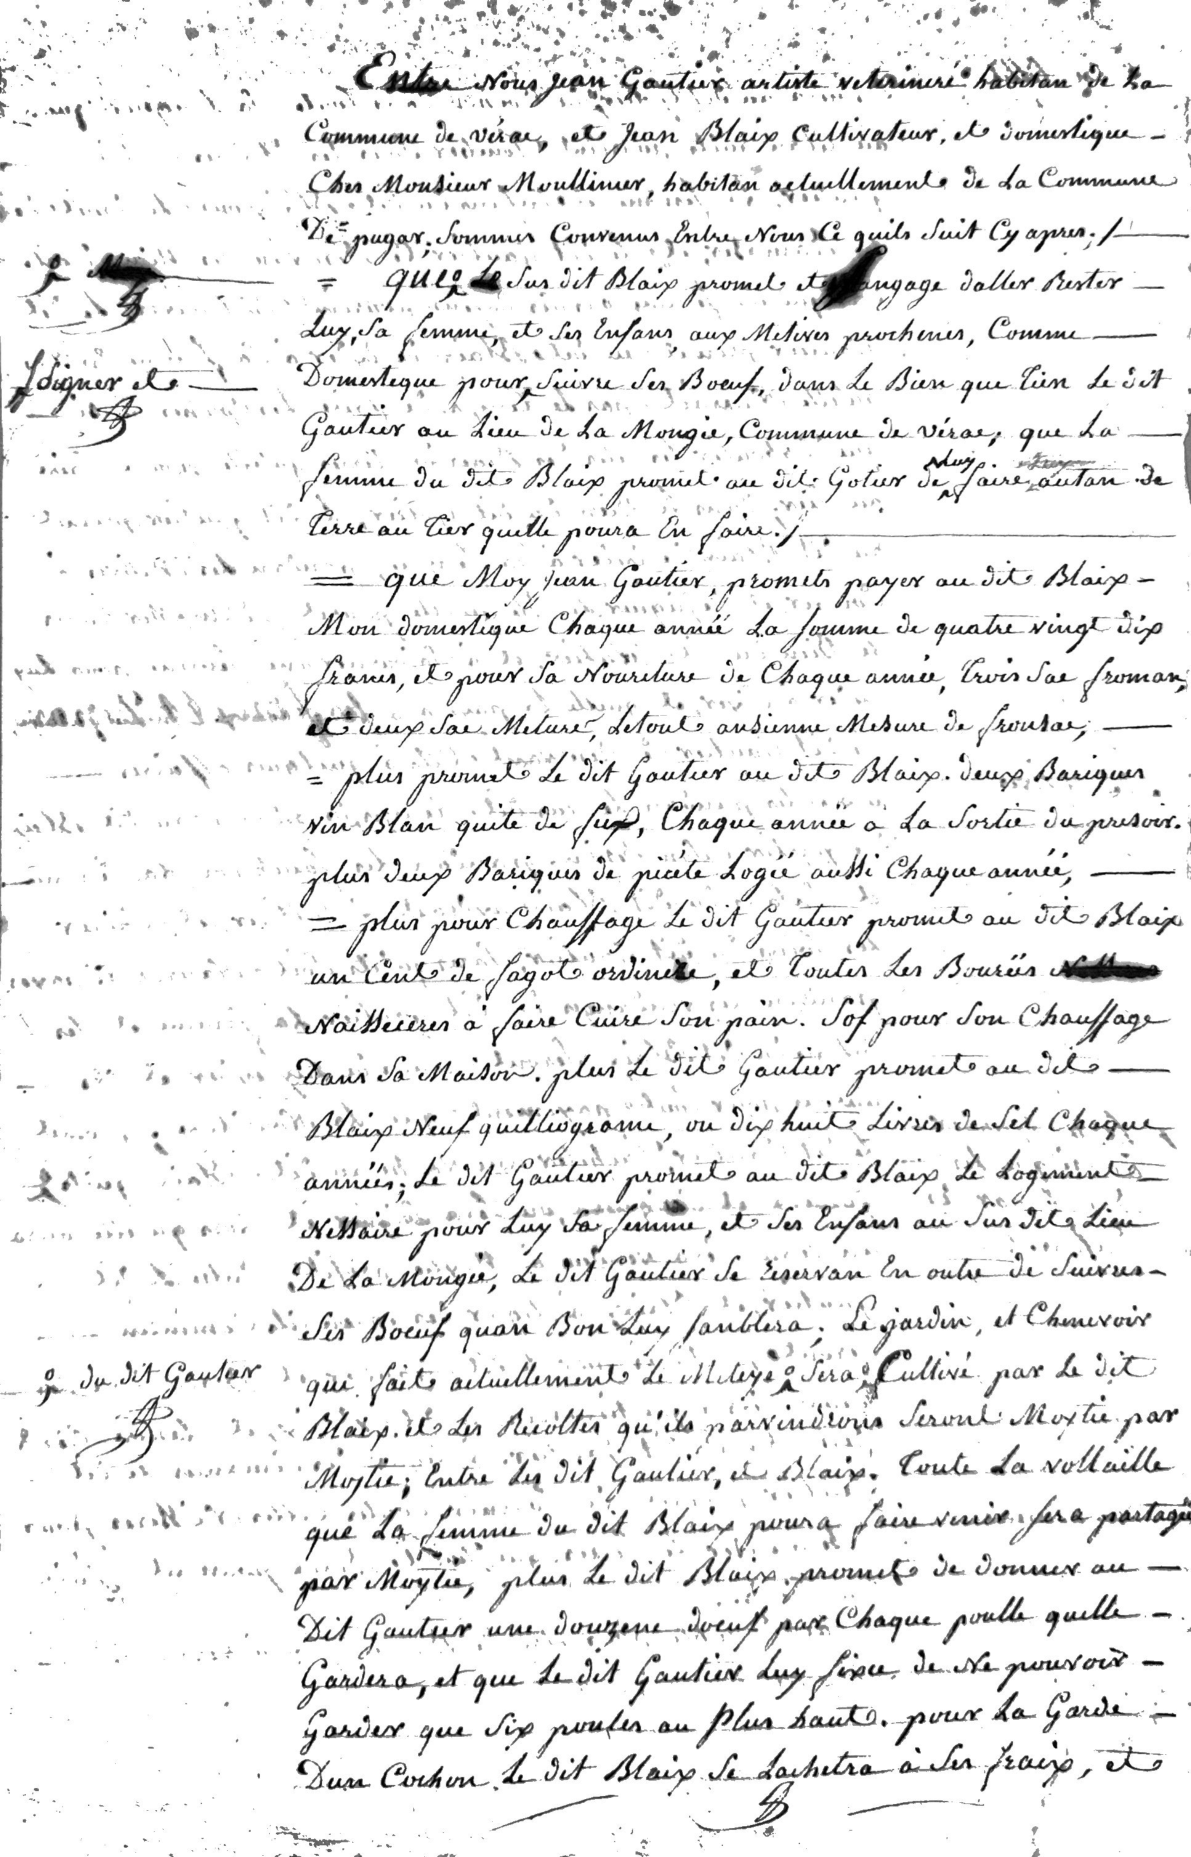 Entre Nous Jean Gautier artiste veterineré habitan de La
Commune de vérac, et Jean Blaix Cultivateur, et domestique
Ches Monsieur Moullinier, habitan actuellement de La Commune
De pugar, Sommes Convenus Entre Nous Ce quils Suit Cy apres. /
= que Le Sus dit Blaix promet et Sangage daller Rester
Luy, Sa femme, et Ses Enfans aux Metives prochenes, Comme
signer et
Domestique pour Suivre Ses Boeuf, dans Le Bien que Tien Le dit
Gautier au Lieu de La Mongie, Commune de vérac, que La
femme du dit Blaix promet au dit Gotier de Luy faire autan de
Terre au Tier quelle poura En faire. /
= que Moy Jean Gautier, promets payer au dit Blaix
Mon domestique Chaque année La somme de quatre vingt dix
francs, et pour Sa Nouriture de Chaque année, Trois Sac froman,
et deux Sac Meture, Letout ansienne Mesure de fronsac,
= plus promet Le dit Gautier au dit Blaix. deux Bariques
vin Blan quite de fux, Chaque année a La Sortie du presoir.
plus deux Bariques de picéte Logéé aussi Chaque annéé,
= plus pour Chauffage Le dit Gautier promet au dit Blaix
un Cent de fagot ordinere, et Toutes Les Bouréés
Naisseceres á faire Cuire Son pain. Sof pour Son Chauffage
Dans Sa Maison. plus Le dit Gautier promet au dit
Blaix Neuf quilliograme, ou dix huit Livres de Sel Chaque
annéés; Le dit Gautier promet au dit Blaix Le Logement
Nessaire pour Luy Sa femme, et Ses Enfans au Sus dit Lieu
De La Mongie, Le dit Gautier Se reservan En outre de Suivres
Ses Boeuf quan Bon Luy Sanblera; Le jardin, et Chenevoir
du dit Gautier
que fait actuellement Le Meteye Sera Cultivé par Le dit
Blaix. et Les Recoltes qu'ils parvindrons Seront Moytie par
Moytie; Entre Les dit Gautier, et Blaix. Toute La vollaille
que La femme du dit Blaix poura faire venir sera partagé
par Moytie, plus Le dit Blaix promet de donner au
Dit Gautier une douzene doeuf par Chaque poulle quelle
Gardera, et que Le dit Gautier Luy fixce de Ne pouvoir
Garder que Six poules au Plus haut. pour La Garde
Dun Cochon Le dit Blaix Se Lachetra á Ses fraix, et